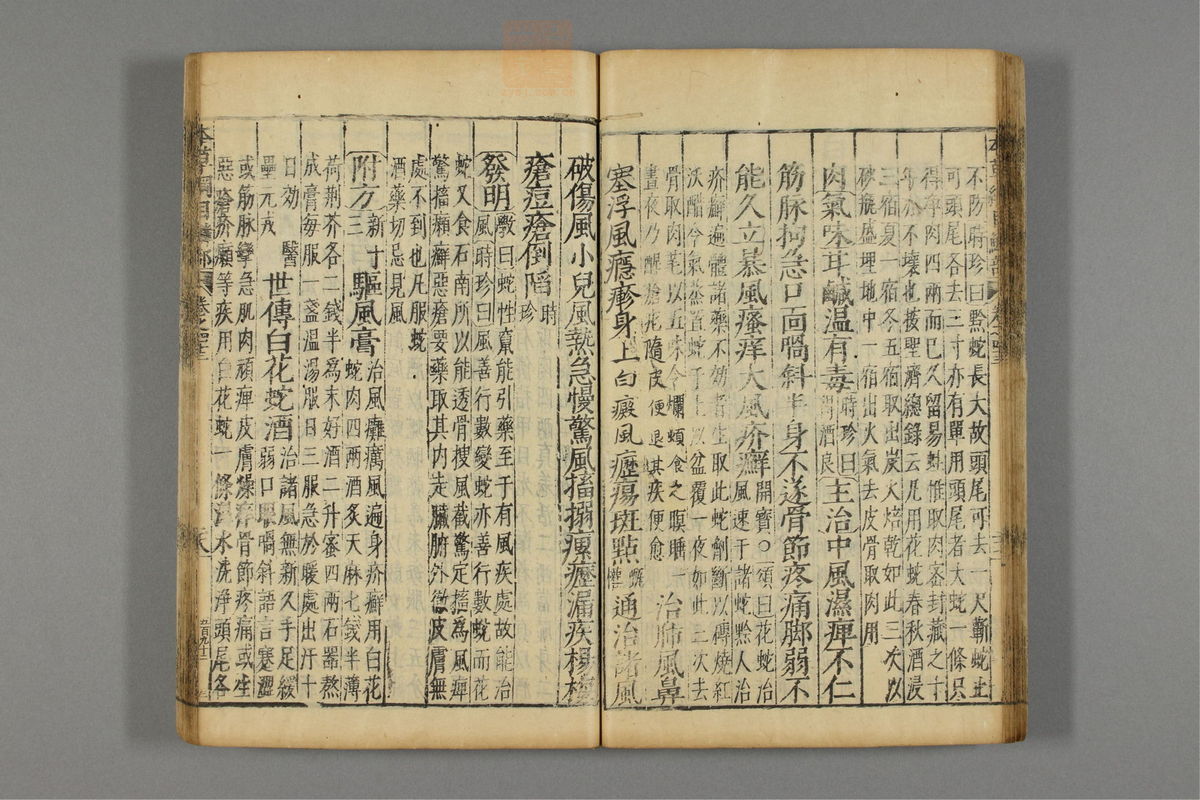 不防時珍曰黔蛇長大故頭尾可去一尺蘄蛇止
可頭尾各去三寸亦有單用頭尾者大蛇一條只
得净肉四兩而已久留易蛀惟取肉密封藏之十
年亦不壞也按聖濟總錄云凡用花蛇春秋酒浸
三宿夏一宿冬五宿取出炭火焙乾如此三次以
砂瓶盛埋地中一宿出火氣去皮骨取肉用
肉氣味甘鹹温有毒時珍曰得酒良主治中風濕痺不仁
筋脉拘急口面喎斜半身不遂骨節疼痛脚弱不
能久立暴風瘙痒大風疥癬開寶○頌曰花蛇治風速于諸蛇黔人治
疥癬遍體諸藥不効者生取此蛇劑斷以磚燒紅
沃醋令氣蒸置蛇于上以盆覆一夜如此三次去
骨取肉芼以五味令爛頓食之瞑眠一
晝夜乃醒瘡疕隨皮便退其疾便愈治肺風鼻
塞浮風癮疹身上白癜風癧瘍斑點甄權通治諸風
破傷風小兒風熱急慢驚風搐搦瘰癧漏疾楊梅
瘡痘瘡倒陷時珍
發明斆曰蛇性竄能引藥至于有風疾處故能治風時珍曰風善行數變蛇亦善行數蛻而花
蛇又食石南所以能透骨搜風截驚定搐為風痺
驚搐癩癬惡瘡要藥取其内走臟腑外徹皮膚無
處不到也凡服蛇
酒藥切忌見風
附方新三寸驅風膏治風癱癘風遍身疥癬用白花蛇肉四兩酒炙天麻七錢半薄
荷荆芥各二錢半為末好酒二升蜜四兩石器熬
成膏每服一盞温湯服日三服急於暖處出汗十
日効 醫
壘元戎世傳白花蛇酒治諸風無新久手足緩弱口眼喎斜語言蹇澀
或筋脉攣急肌肉頑痺皮膚燥痒骨節疼痛或生
惡瘡疥癩等疾用白花蛇一條温水洗淨頭尾各